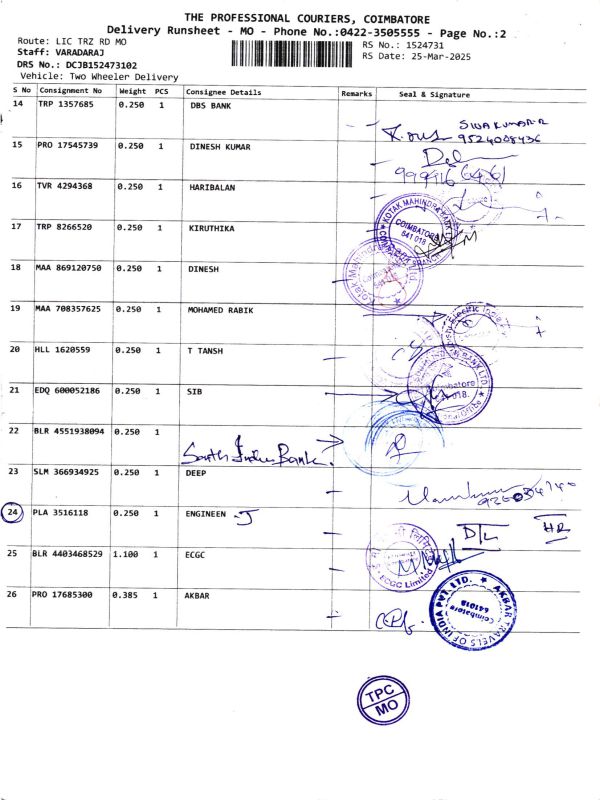 THE PROFESSIONAL COURIERS, COIMBATORE
Delivery Runsheet - MO - Phone No.:0422-3505555 - Page No.:2
Route: LIC TRZ RD MO
Staff: VARADARAJ
DRS No.: DCJB152473102
Vehicle: Two Wheeler Delivery
RS No.: 1524731
RS Date: 25-Mar-2025
S No Consignment No Weight PCS Consignee Details Remarks Seal & Signature
14 TRP 1357685 0.250 1 DBS BANK
SIVAKUMAR.R
9524008436
15 PRO 17545739 0.250 1 DINESH KUMAR
16 TVR 4294368 0.250 1 HARIBALAN
KOTAK MAHINDRA BANK
COIMBATORE
641 018
17 TRP 8266520 0.250 1 KIRUTHIKA
18 MAA 869120750 0.250 1 DINESH
19 MAA 708357625 0.250 1 MOHAMED RABIK
20 HLL 1620559 0.250 1 T TANSH
21 EDQ 600052186 0.250 1 SIB
22 BLR 4551938094 0.250 1
South Indian Bank.
23 SLM 366934925 0.250 1 DEEP
24 PLA 3516118 0.250 1 ENGINEEN -J
D/L HR
25 BLR 4403468529 1.100 1 ECGC
ECGC Limited
26 PRO 17685300 0.385 1 AKBAR
AKBAR TRAVELS OF INDIA PVT. LTD.
Coimbatore
641018
TPC
MO